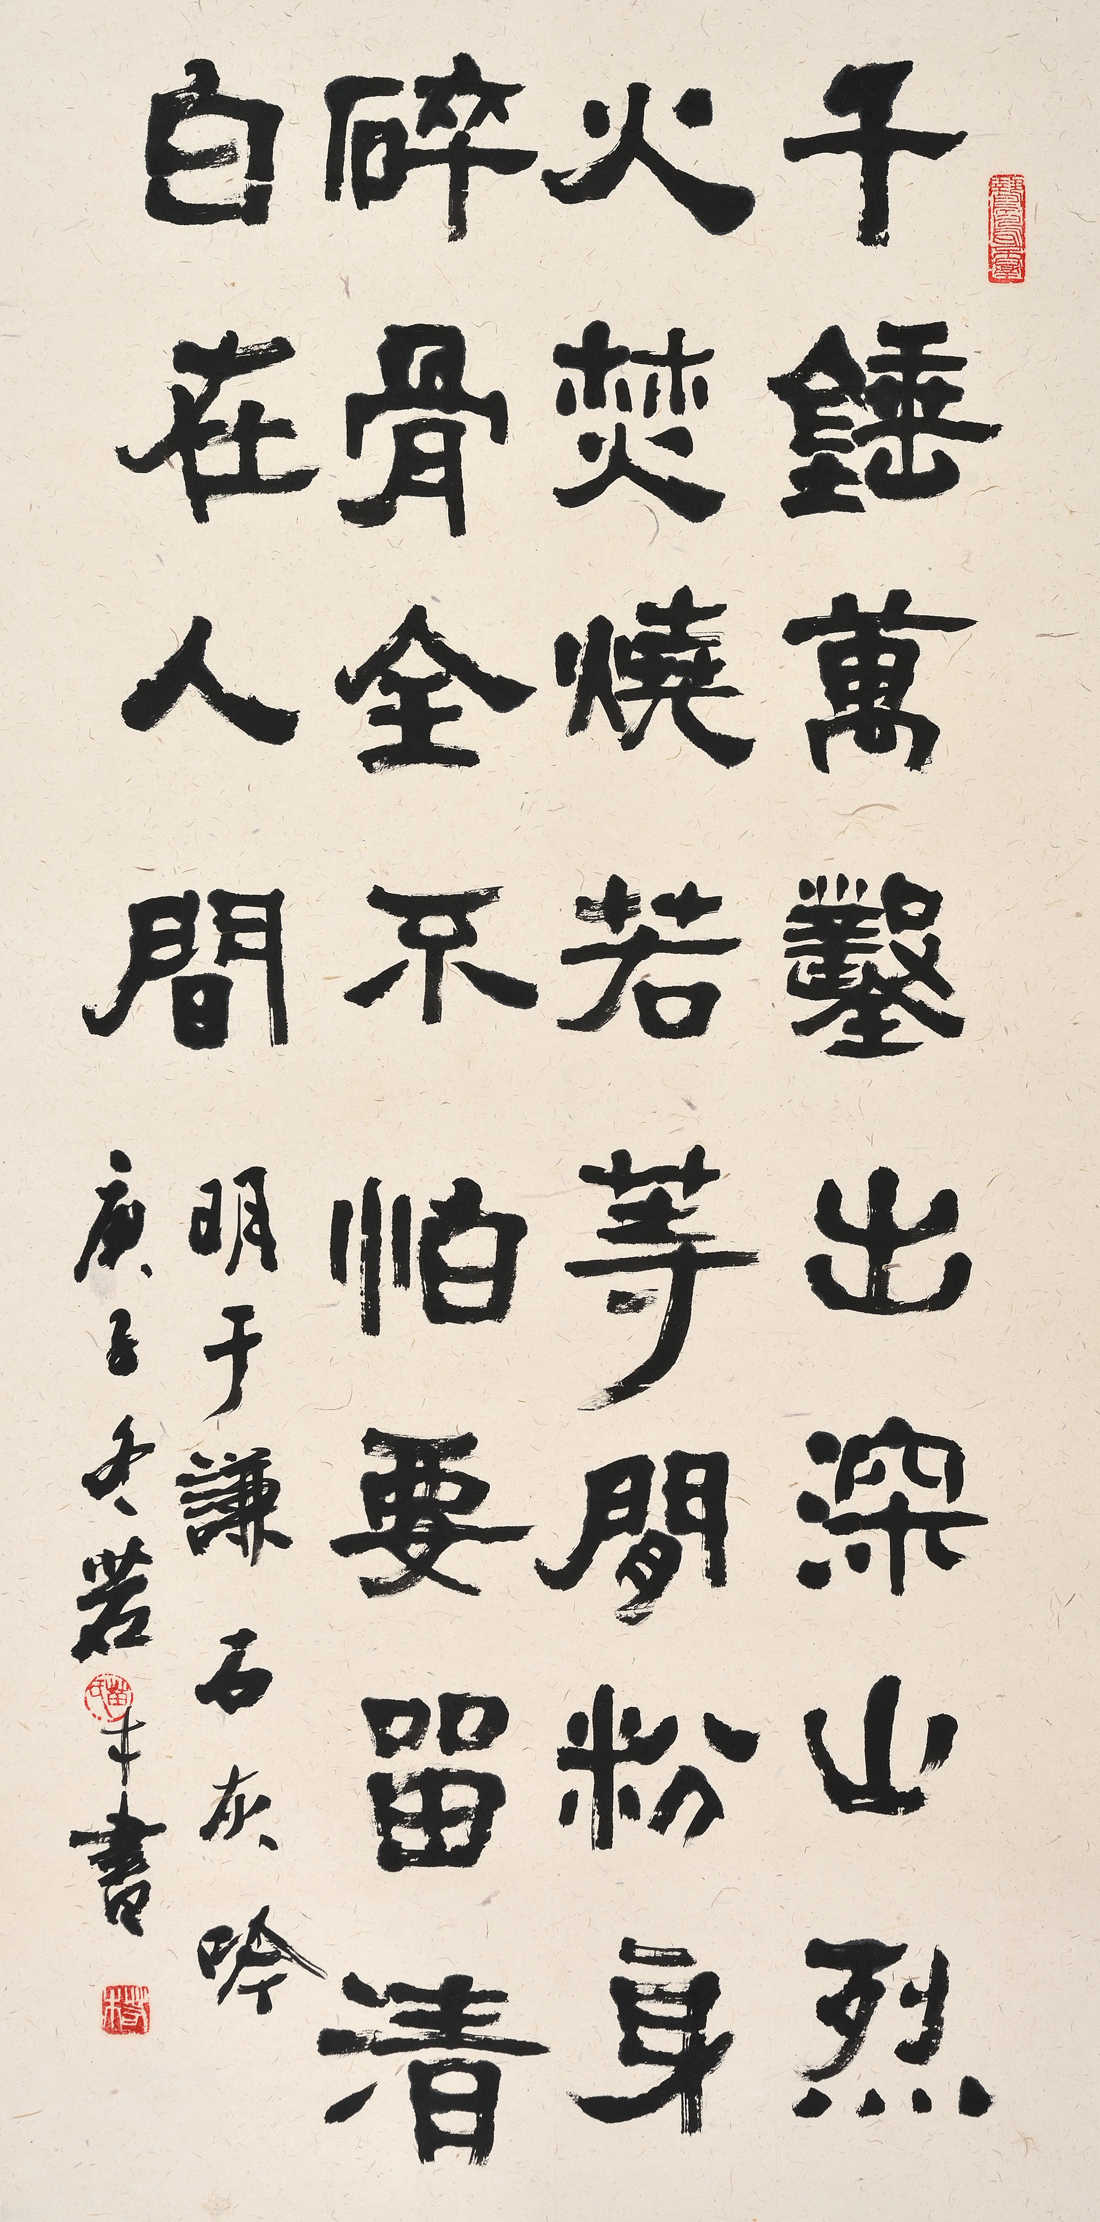 千錘萬鑿出深山烈
火焚燒若等閒粉身
碎骨全不怕要留清
白在人間
明于謙石灰吟
庚子冬若 書